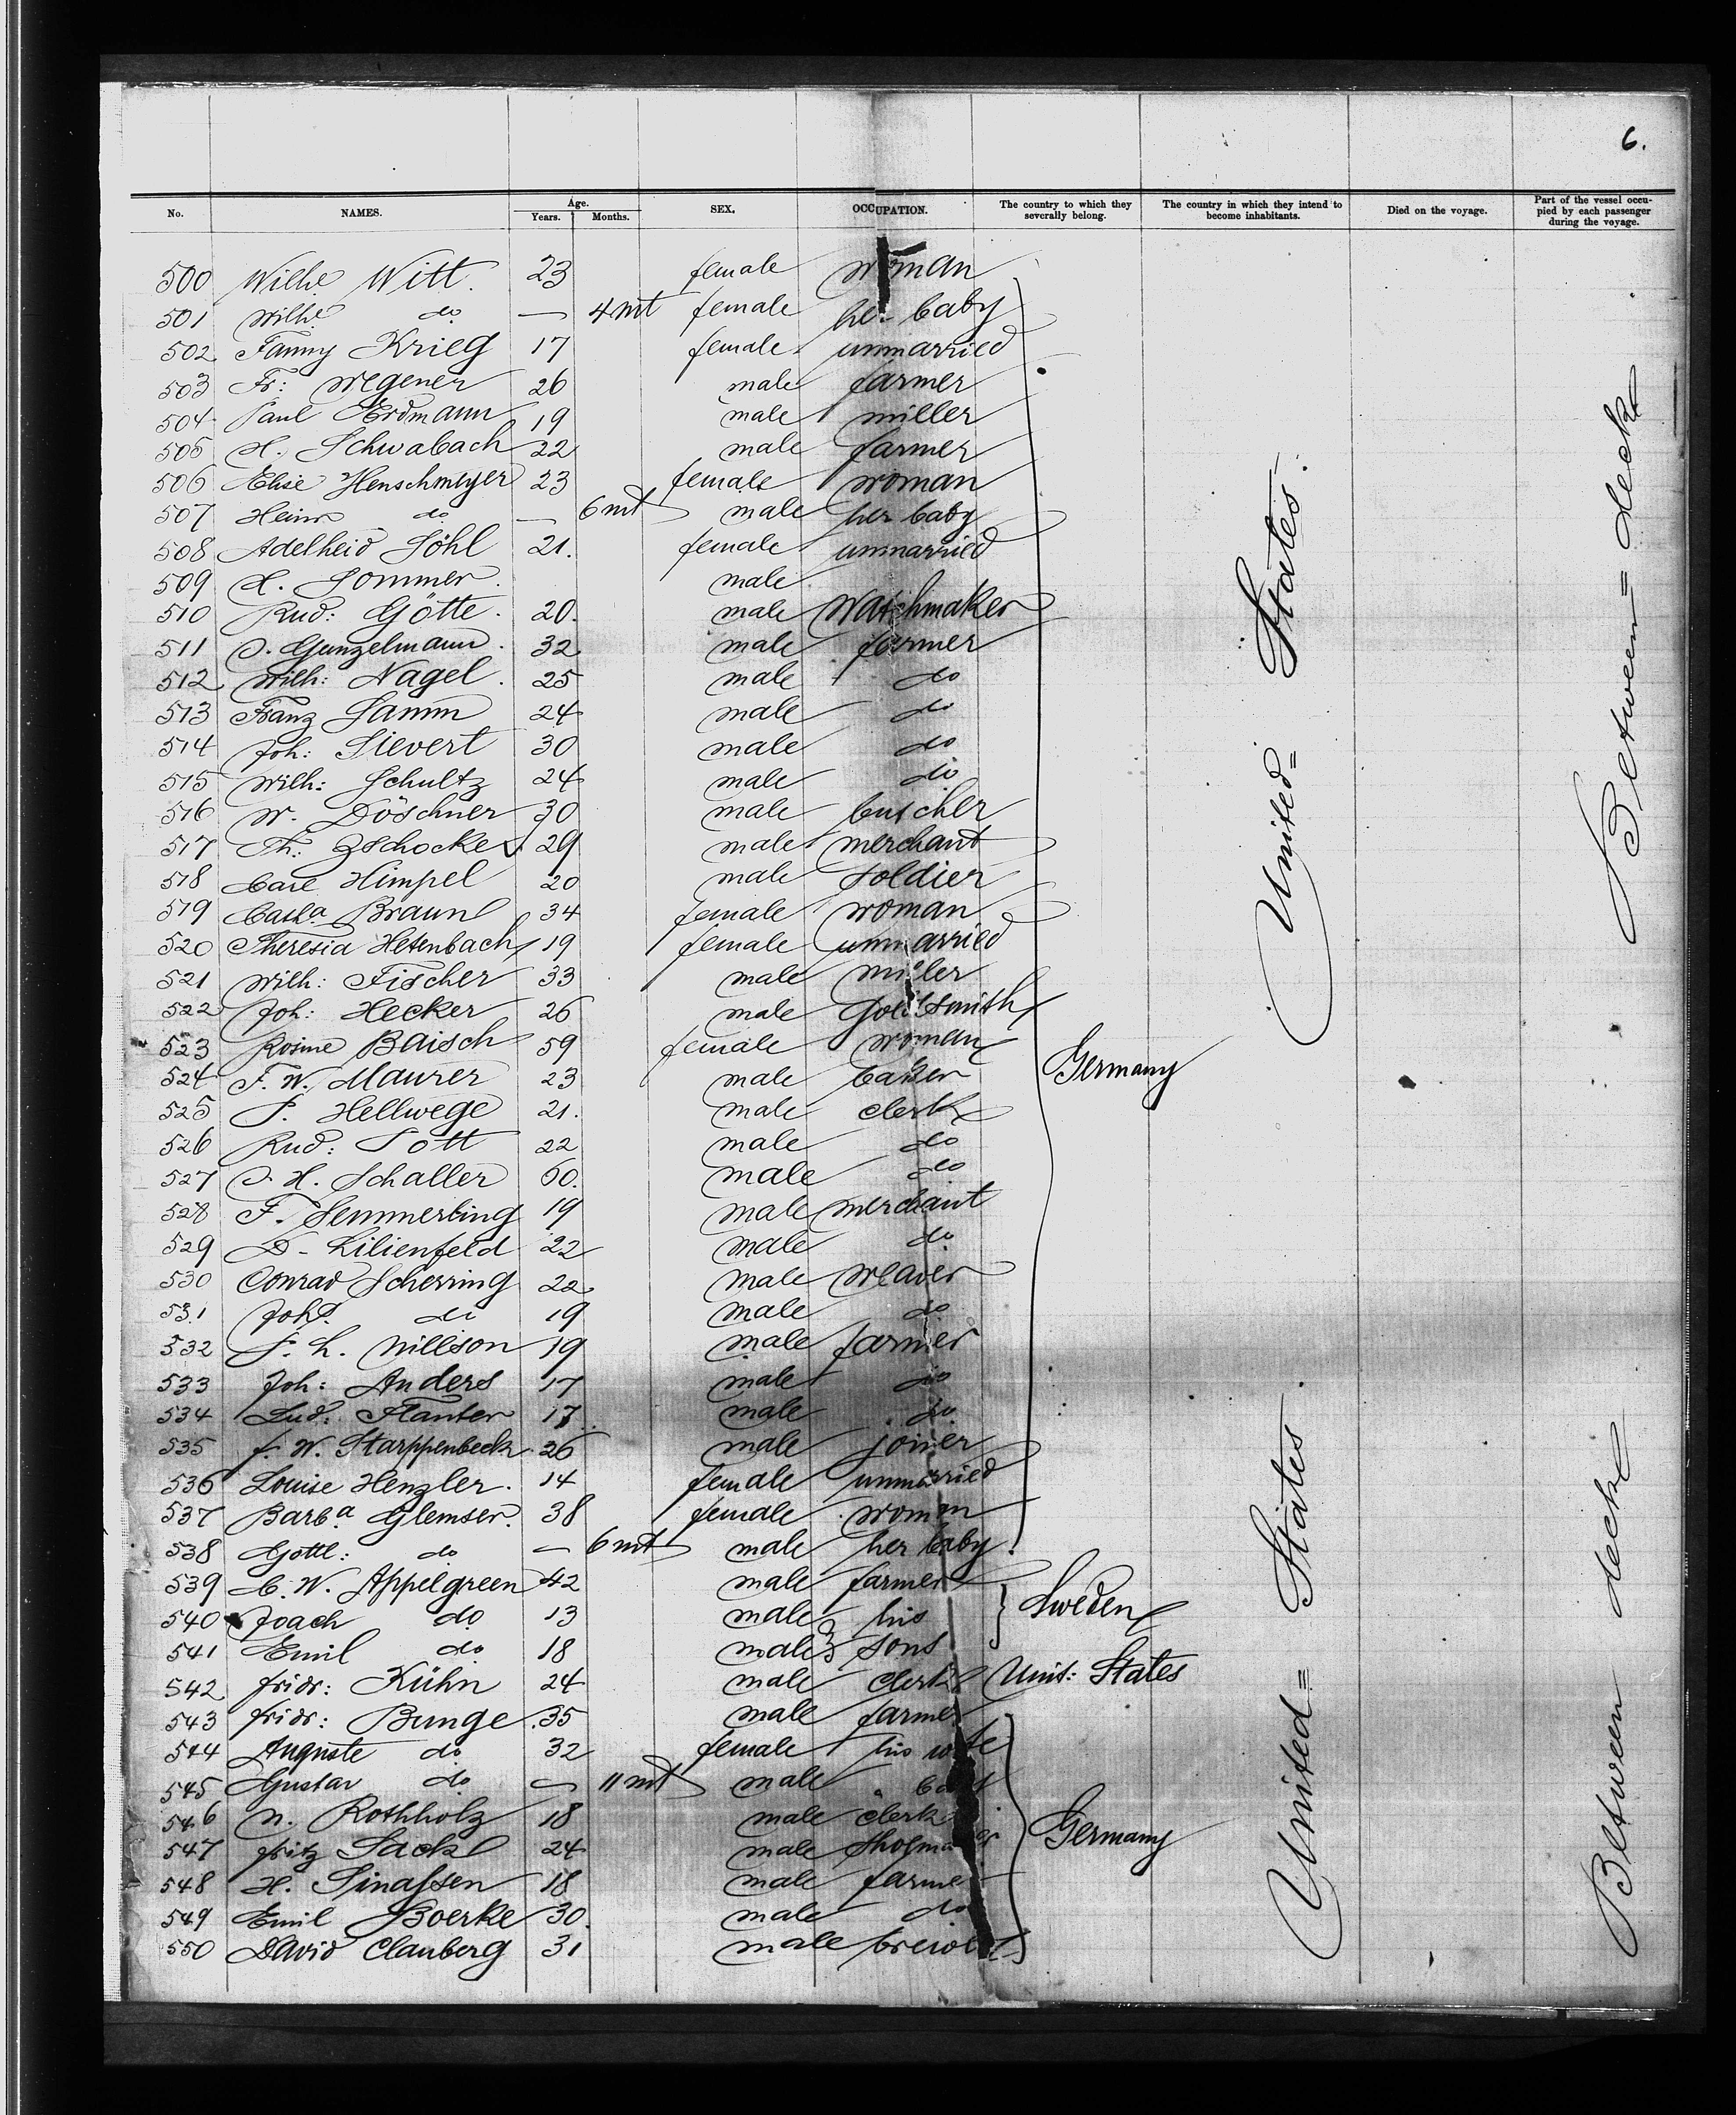 6.
No. NAMES. Age. Years. Months. SEX. OCCUPATION. The country to which they severally belong. The country in which they intend to become inhabitants. Died on the voyage. Part of the vessel occupied by each passenger during the voyage.
500 Wilhe Witt. 23 female woman
501 Wilhe do — 4 mt female her baby
502 Fanny Krieg 17 female unmarried
503 Fr: Wegener 26 male farmer
504 Paul Erdmann 19 male miller
505 H. Schwabach 22 male farmer
506 Elise Henschmeyer 23 female woman
507 Heinr do — 6 mt male her baby
508 Adelheid Söhl 21. female unmarried
509 H. Sommer. male
510 Rud: Götte. 20. male Watchmaker
511 J. Gunzelmann. 32 male farmer
512 Wilh: Nagel. 25 male do
513 Franz Samm 24 male do
514 Joh: Sievert 30 male do
515 Wilh: Schultz 24 male do
516 W. Döschner 30 male butcher
517 Th: Zschocke 29 male merchant
518 Carl Himpel 20 male soldier
519 Catha Braun 34 female woman
520 Theresia Hetenbach 19 female unmarried
521 Wilh: Fischer 33 male miller
522 Joh: Hecker 26 male goldsmith
523 Rosine Baisch 59 female woman
524 F. W. Maurer 23 male baker Germany
525 J. Hellwege 21. male clerk
526 Rud: Tott 22 male do
527 J. H. Schaller 60. male do
528 F. Semmerling 19 male merchant
529 D. Lilienfeld 22 male do
530 Conrad Scherring 22 male weaver
531 Johs. do 19 male do
532 J. L. Nillson 19 male farmer
533 Joh: Anders 17 male do
534 Lud: Flanter 17. male do
535 J. W. Starppenbeck 26 male joiner
536 Louise Henzler. 14 female unmarried
537 Barba Glemser. 38 female woman
538 Gottl: do — 6 mt male her baby.
539 C. W. Appelgreen 42 male farmer
540 Joach do 13 male } his Sweden
541 Emil do 18 male } sons
542 Fridr: Kühn 24 male clerk Unit: States
543 Fridr: Bunge 35 male farmer
544 Auguste do 32 female his wife
545 Gustav do — 11 mt male baby
546 N. Rothholz 18 male clerk
547 Fritz Sack 24 male Germany
548 H. Sinassen 18 male farmer
549 Emil Boerke 30. male do
550 David Clauberg 31 male
United= States.
United= States
Between= deck
Between deck